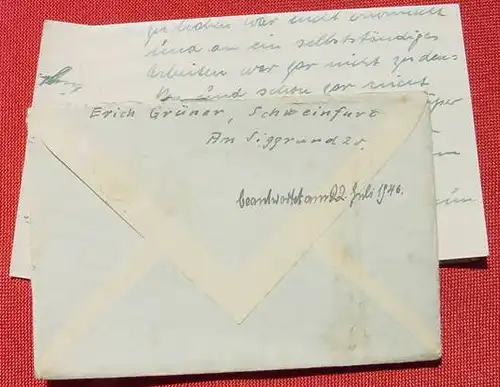 zu haben war nicht
und an ein selbstständiges
Arbeiten war gar nicht zu den-
und schon gar nicht
Erich Grüner, Schweinfurt
An Siggrund 20.
beantwortet am 22 Juli 1946.